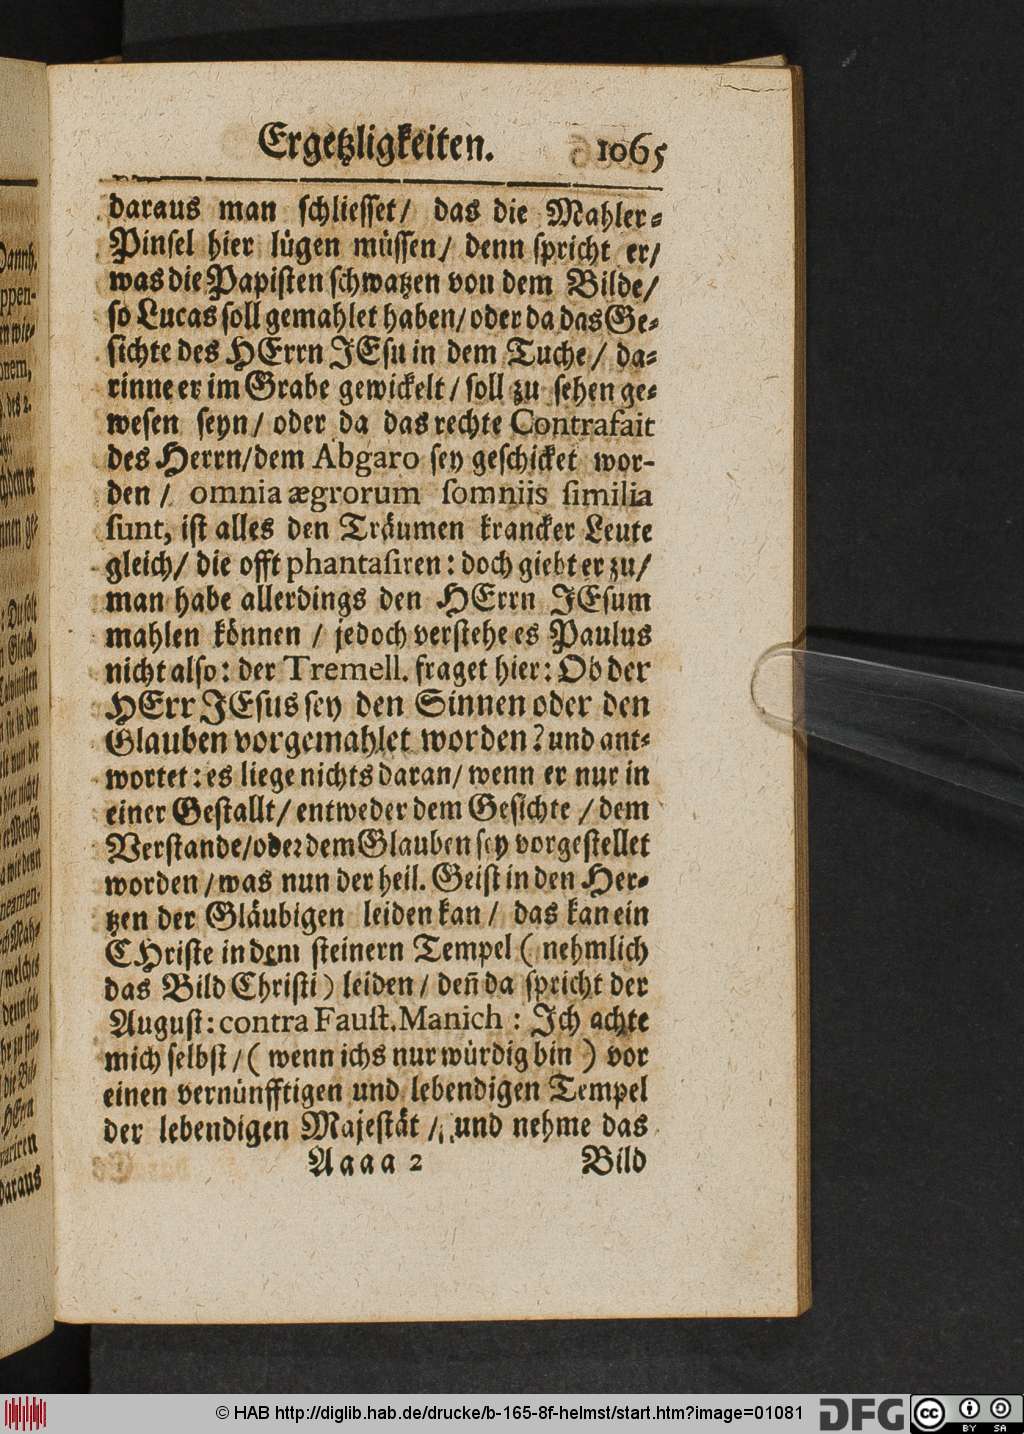 Ergetzligkeiten. 1065
daraus man schliesset/ das die Mahler-
Pinsel hier lügen müssen/ denn spricht er/
was die Papisten schwatzen von dem Bilde/
so Lucas soll gemahlet haben/ oder da das Ge-
sichte des HErrn JEsu in dem Tuche/ da-
rinne er im Grabe gewickelt/ soll zu sehen ge-
wesen seyn/ oder da das rechte Contrafait
des Herrn/dem Abgaro sey geschicket wor-
den/ omnia ægrorum somniis similia
sunt, ist alles den Träumen krancker Leute
gleich/ die offt phantasiren: doch giebt er zu/
man habe allerdings den HErrn JEsum
mahlen können / jedoch verstehe es Paulus
nicht also: der Tremell. fraget hier: Ob der
HErr JEsus sey den Sinnen oder den
Glauben vorgemahlet worden? und ant-
wortet: es liege nichts daran/ wenn er nur in
einer Gestallt/ entweder dem Gesichte / dem
Verstande/oder dem Glauben sey vorgestellet
worden /was nun der heil. Geist in den Her-
tzen der Gläubigen leiden kan/ das kan ein
CHriste in dem steinern Tempel ( nehmlich
das Bild Christi) leiden/ deñ da spricht der
August: contra Faust. Manich: Jch achte
mich selbst/ ( wenn ichs nur würdig bin ) vor
einen vernünfftigen und lebendigen Tempel
der lebendigen Majestät / und nehme das
Aaaa 2 Bild
Dannh.
ppen-
daraus
© HAB http://diglib.hab.de/drucke/b-165-8f-helmst/start.htm?image=01081 DFG cc BY SA